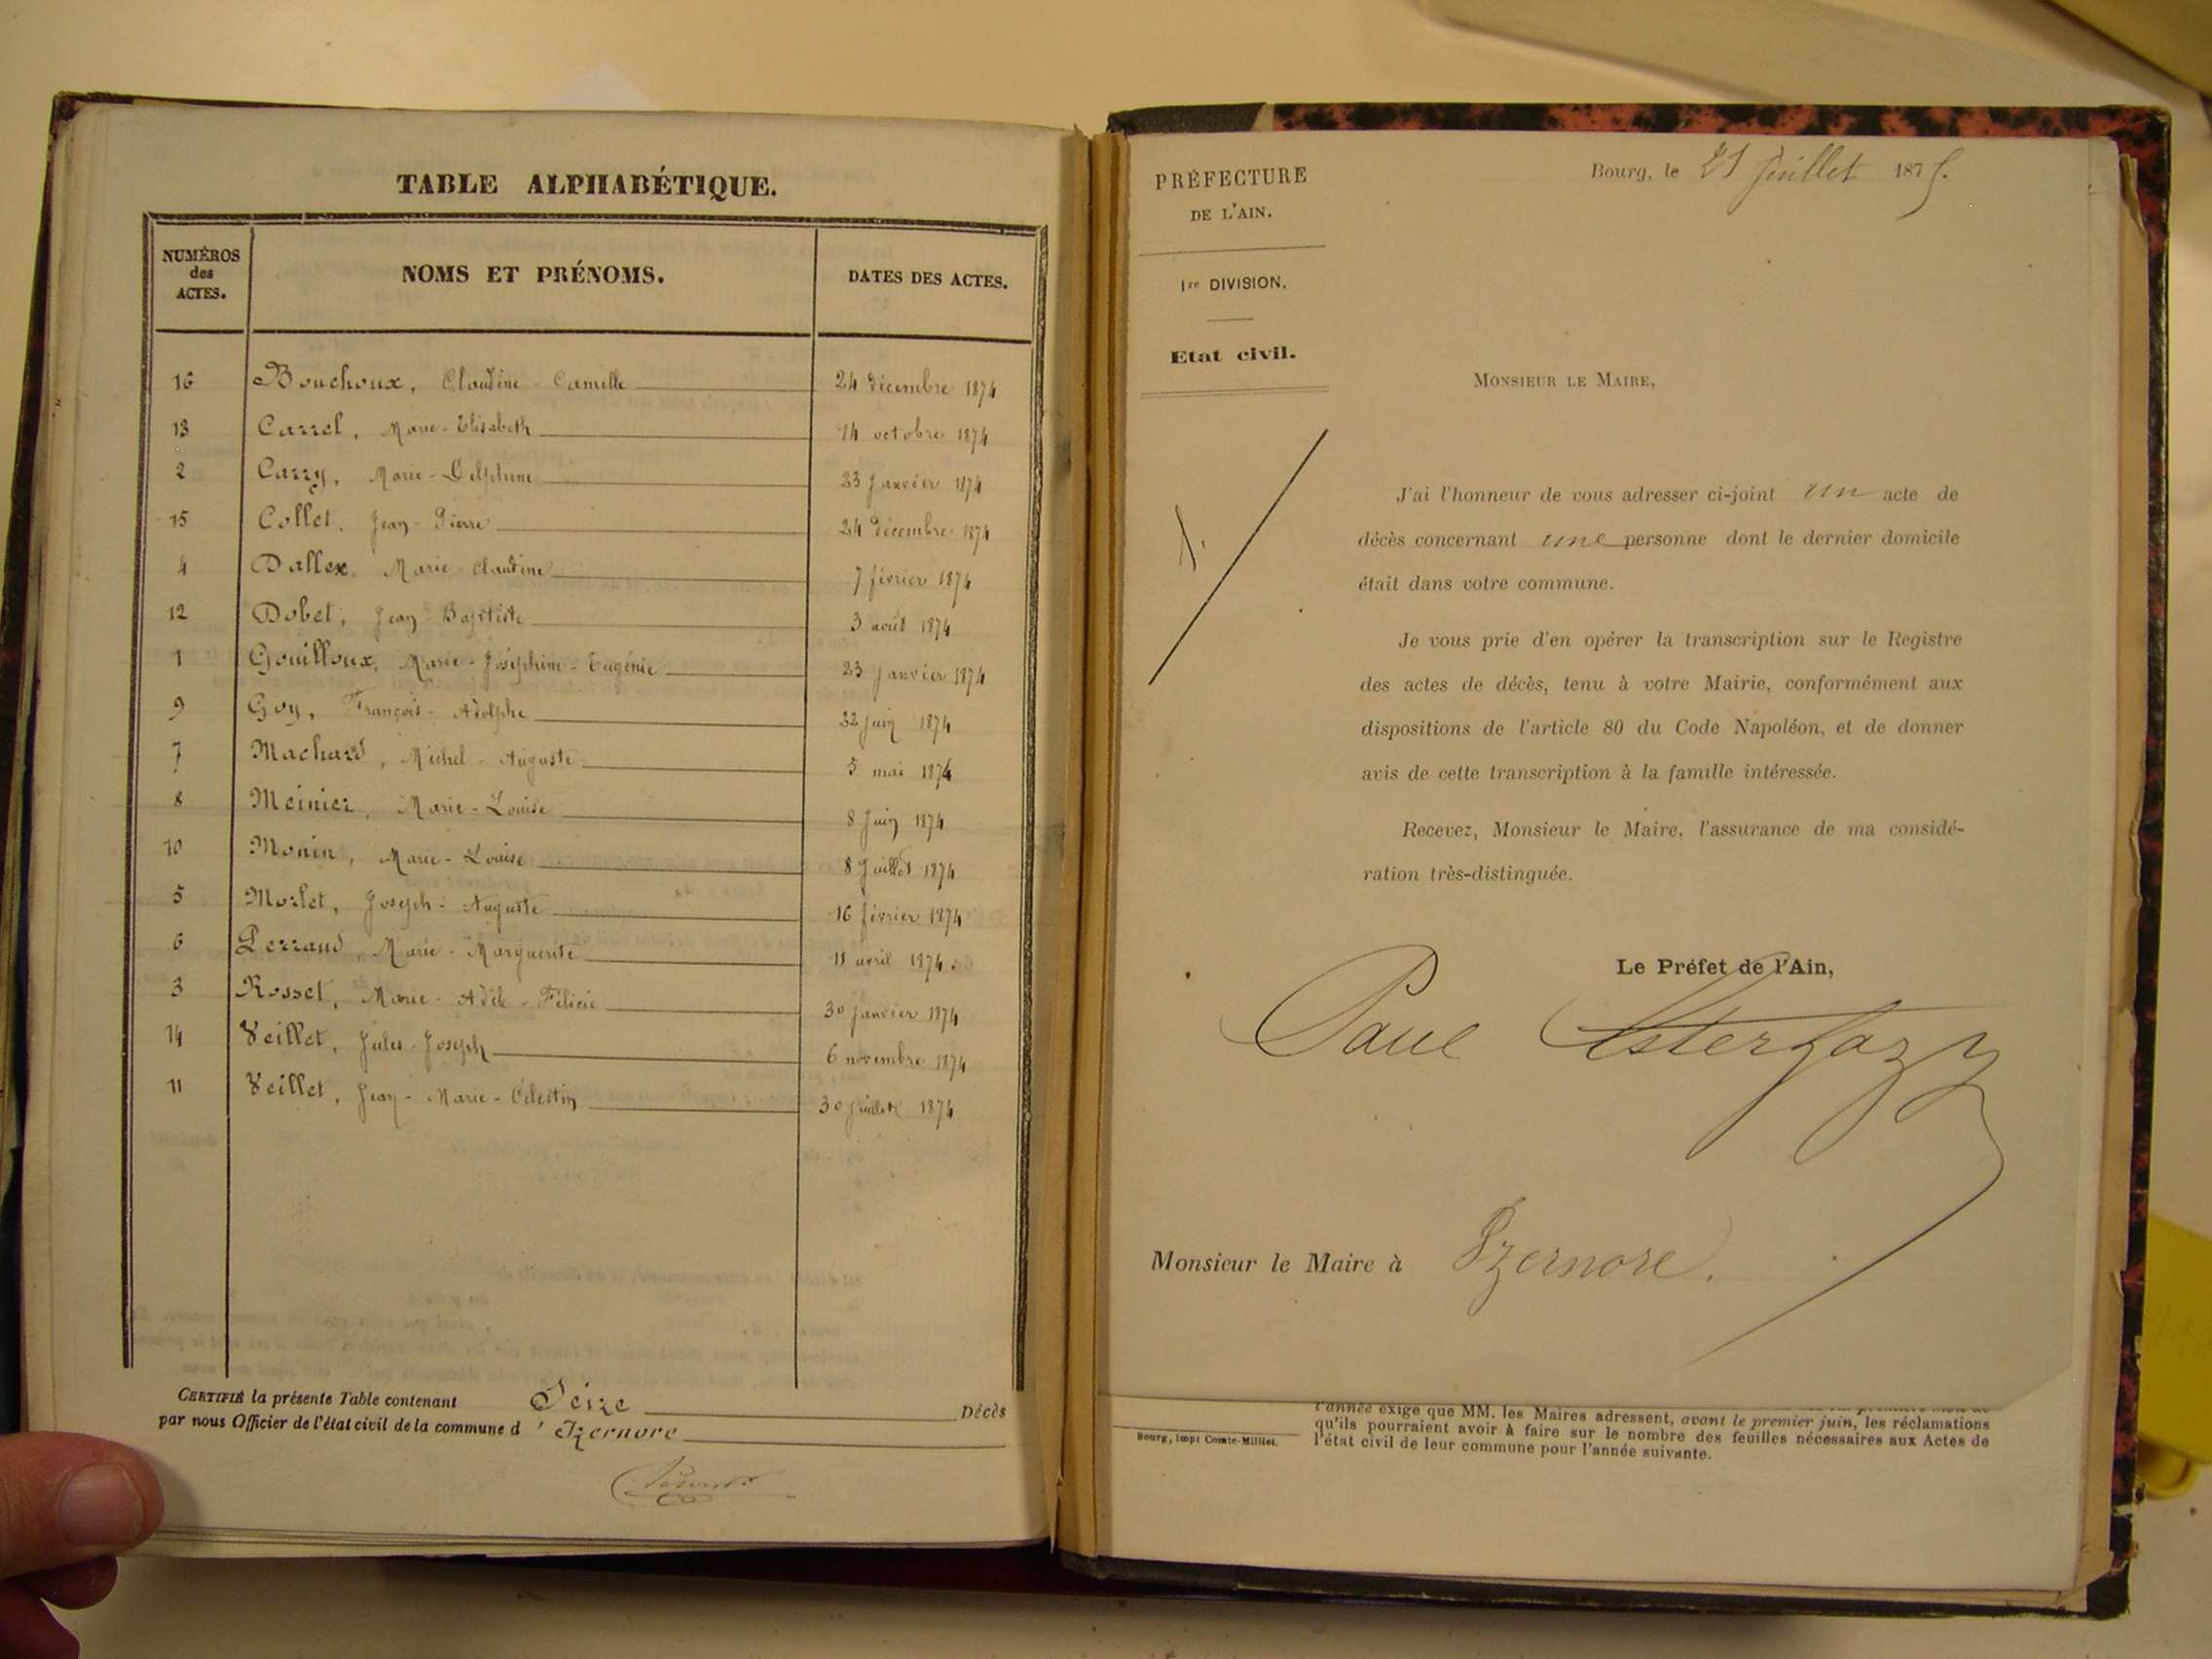 TABLE ALPHABÉTIQUE.
NUMÉROS des ACTES.
NOMS ET PRÉNOMS.
DATES DES ACTES.
16 Bouchoux, Claudine - Camille 24 décembre 1874
13 Carrel, Marie - Elisabeth 14 octobre 1874
2 Carry, Marie - Delphine 23 Janvier 1874
15 Collet, Jean - Pierre 24 décembre 1874
4 Dallex, Marie - Claudine 7 février 1874
12 Dobet, Jean Baptiste 3 août 1874
1 Gouilloux, Marie - Joséphine - Eugénie 23 janvier 1874
9 Goy, François - Adolphe 22 juin 1874
7 Machard, Michel - Auguste 5 mai 1874
8 Meinier, Marie - Louise 8 Juin 1874
10 Monin, Marie - Louise 8 Juillet 1874
5 Morlet, Joseph - Auguste 16 février 1874
6 Perraud, Marie - Marguerite 11 avril 1874
3 Rosset, Marie - Adèle - Félicie 30 janvier 1874
14 Veillet, Jules - Joseph 6 novembre 1874
11 Veillet, Jean - Marie - Célestin 30 juillet 1874
CERTIFIÉ la présente Table contenant Seize Décès
par nous Officier de l'état civil de la commune d'Izernore
PRÉFECTURE
DE L'AIN.
1re DIVISION.
Etat civil.
Bourg, le 21 Juillet 1875.
MONSIEUR LE MAIRE,
J'ai l'honneur de vous adresser ci-joint un acte de
décès concernant une personne dont le dernier domicile
était dans votre commune.
Je vous prie d'en opérer la transcription sur le Registre
des actes de décès, tenu à votre Mairie, conformément aux
dispositions de l'article 80 du Code Napoléon, et de donner
avis de cette transcription à la famille intéressée.
Recevez, Monsieur le Maire, l'assurance de ma considé-
ration très-distinguée.
Le Préfet de l'Ain,
Paul Esterhazy
Monsieur le Maire à Izernore.
l'année exige que MM. les Maires adressent, avant le premier juin, les réclamations
qu'ils pourraient avoir à faire sur le nombre des feuilles nécessaires aux Actes de
l'état civil de leur commune pour l'année suivante.
Bourg, imp. Comte-Milliet.